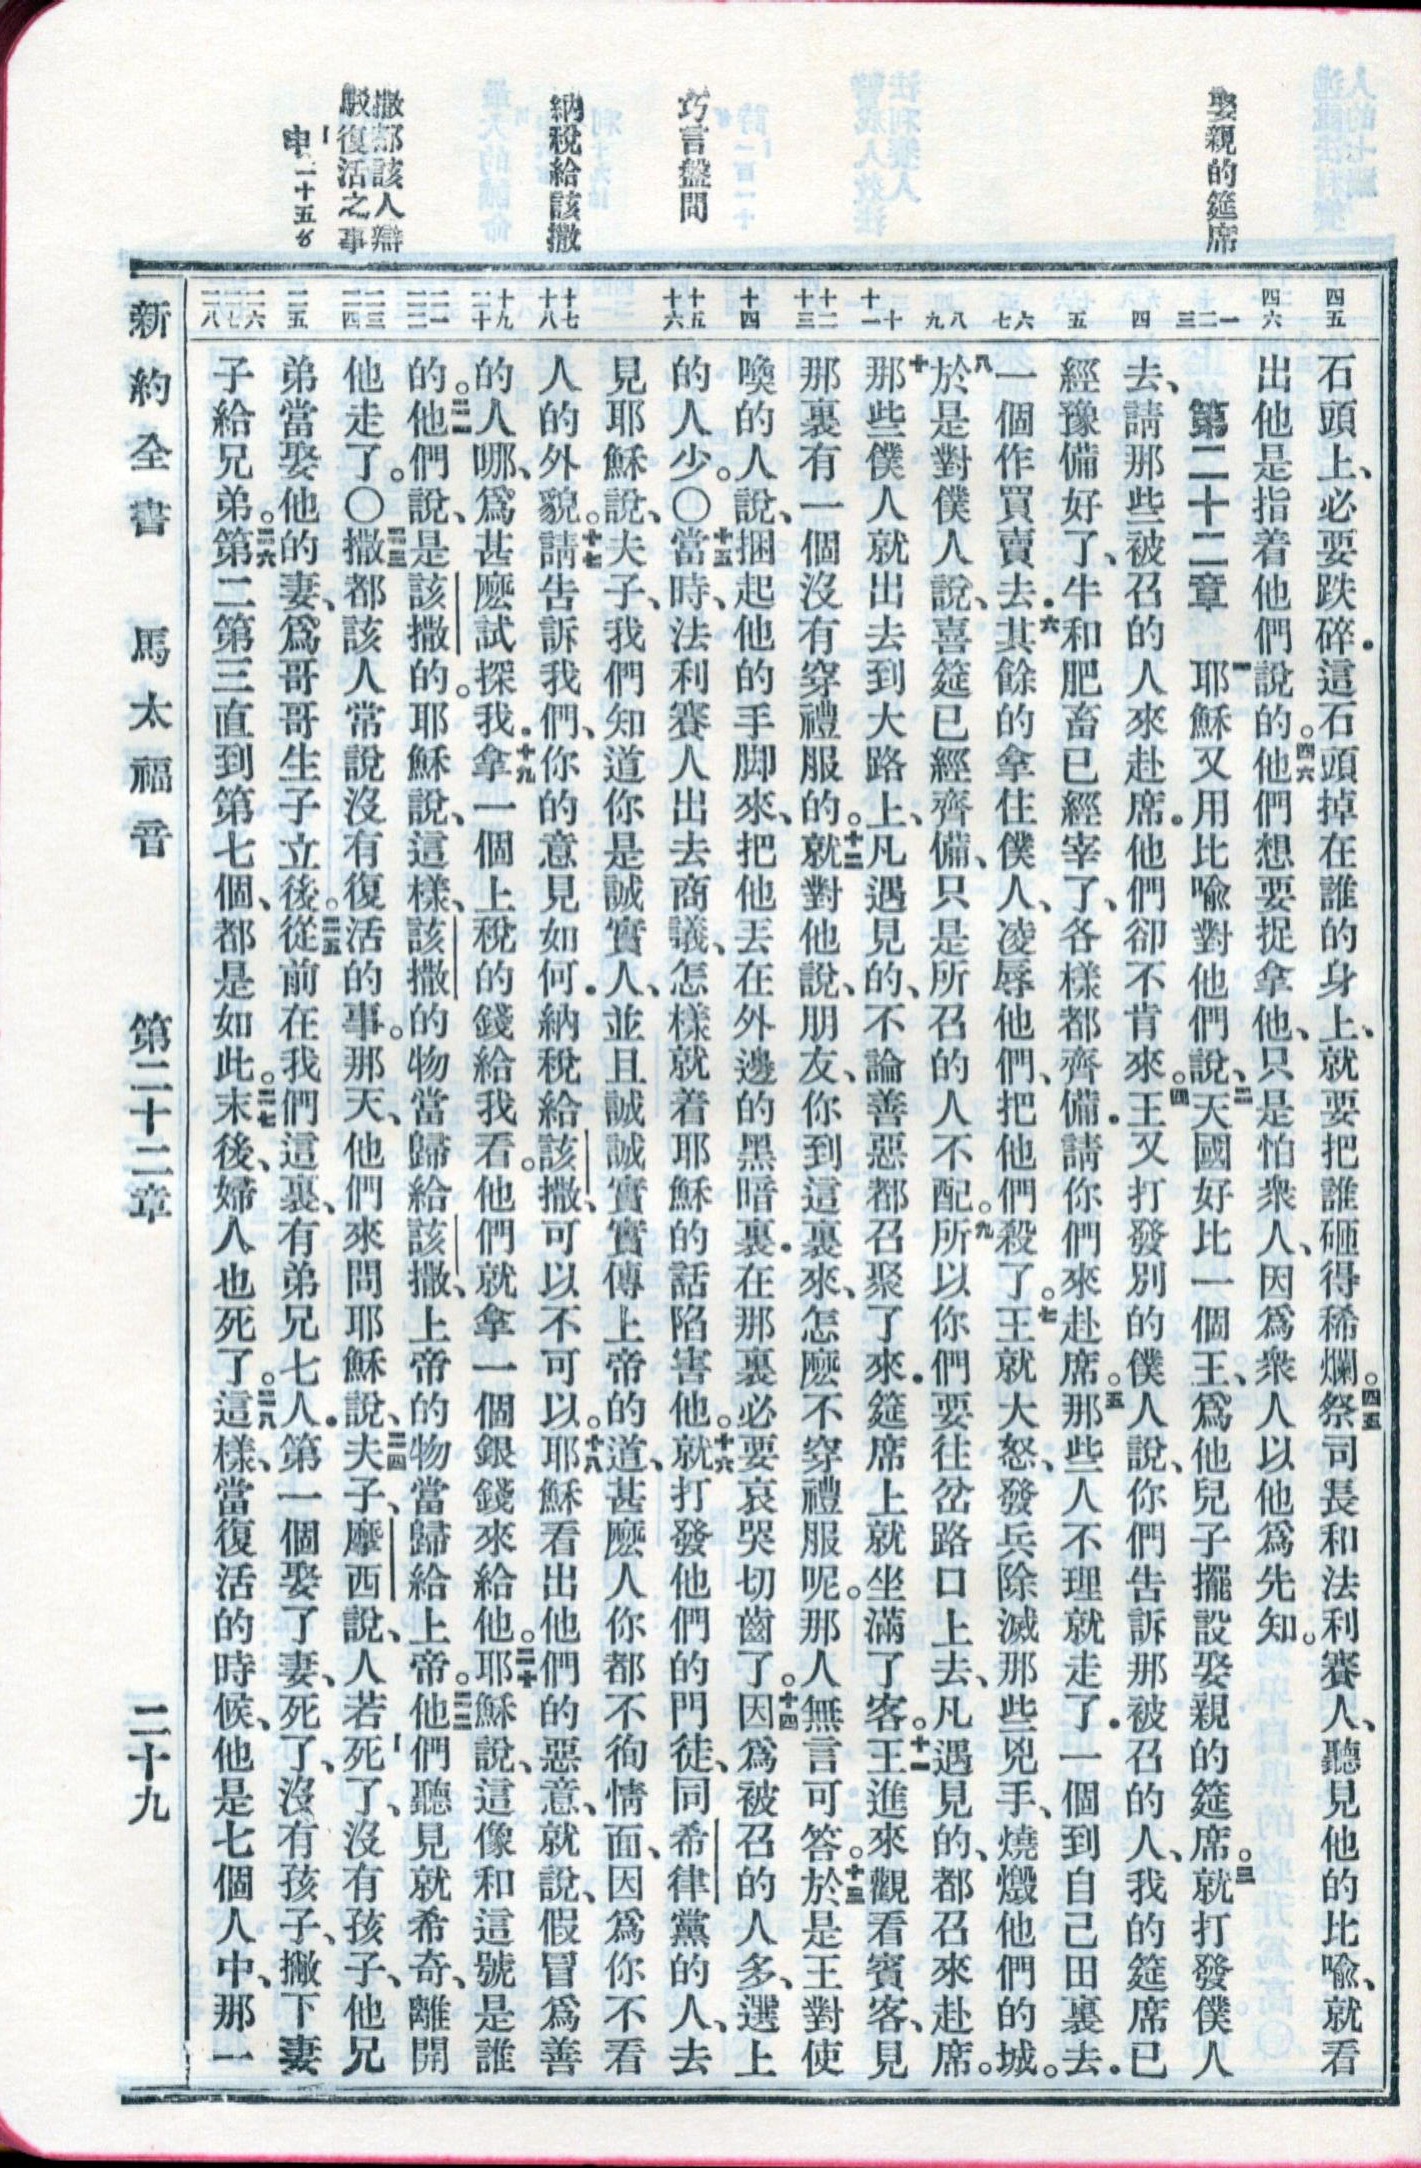 娶親的筵席
巧言盤問
納稅給該撒
撒都該人辯
駁復活之事
申二十五
四五
石頭上、必要跌碎．這石頭掉在誰的身上、就要把誰砸得稀爛。四五祭司長和法利賽人、聽見他的比喻、就看
四六
出他是指着他們說的。四六他們想要捉拿他、只是怕衆人、因爲衆人以他爲先知。
一二三
第二十二章　一耶穌又用比喻對他們說、二天國好比一個王、爲他兒子擺設娶親的筵席。三就打發僕人
四
去、請那些被召的人來赴席．他們卻不肯來。四王又打發別的僕人說、你們告訴那被召的人、我的筵席已
五
經豫備好了、牛和肥畜已經宰了、各樣都齊備．請你們來赴席。五那些人不理就走了．一個到自己田裏去．
六七
一個作買賣去．六其餘的拿住僕人、凌辱他們、把他們殺了。七王就大怒、發兵除滅那些兇手、燒燬他們的城。
八九
八於是對僕人說、喜筵已經齊備、只是所召的人不配。九所以你們要往岔路口上去、凡遇見的、都召來赴席。
十十一
十那些僕人就出去到大路上、凡遇見的、不論善惡都召聚了來．筵席上就坐滿了客。十一王進來觀看賓客、見
十二十三
那裏有一個沒有穿禮服的。十二就對他說、朋友、你到這裏來、怎麼不穿禮服呢。那人無言可答。十三於是王對使
十四
喚的人說、捆起他的手脚來、把他丟在外邊的黑暗裏．在那裏必要哀哭切齒了。十四因爲被召的人多、選上
十五十六
的人少。〇十五當時、法利賽人出去商議、怎樣就着耶穌的話陷害他。十六就打發他們的門徒、同希律黨的人、去
見耶穌說、夫子、我們知道你是誠實人、並且誠誠實實傳上帝的道、甚麼人你都不徇情面、因爲你不看
十七十八
人的外貌。十七請告訴我們、你的意見如何．納稅給該撒、可以不可以。十八耶穌看出他們的惡意、就說、假冒爲善
十九二十
的人哪、爲甚麼試探我．十九拿一個上稅的錢給我看。他們就拿一個銀錢來給他。二十耶穌說、這像和這號是誰
二一二二
的。二一他們說、是該撒的。耶穌說、這樣、該撒的物當歸給該撒、上帝的物當歸給上帝。二二他們聽見就希奇、離開
二三二四
他走了。〇二三撒都該人常說沒有復活的事。那天、他們來問耶穌說、二四夫子、摩西說、人若死了、沒有孩子、他兄
二五
弟當娶他的妻、爲哥哥生子立後。二五從前在我們這裏、有弟兄七人．第一個娶了妻、死了、沒有孩子、撇下妻
二六二七二八
子給兄弟。二六第二第三直到第七個、都是如此。二七末後、婦人也死了。二八這樣、當復活的時候、他是七個人中、那一
新約全書　馬太福音　第二十二章　二十九